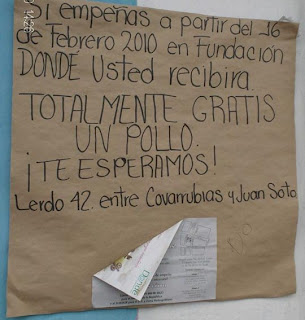 Si empeñas a partir del 16
de Febrero 2010 en Fundación
DONDE Usted recibira
TOTALMENTE GRATIS
UN POLLO.
¡TE ESPERAMOS!
Lerdo 42. entre Covarrubias y Juan Soto